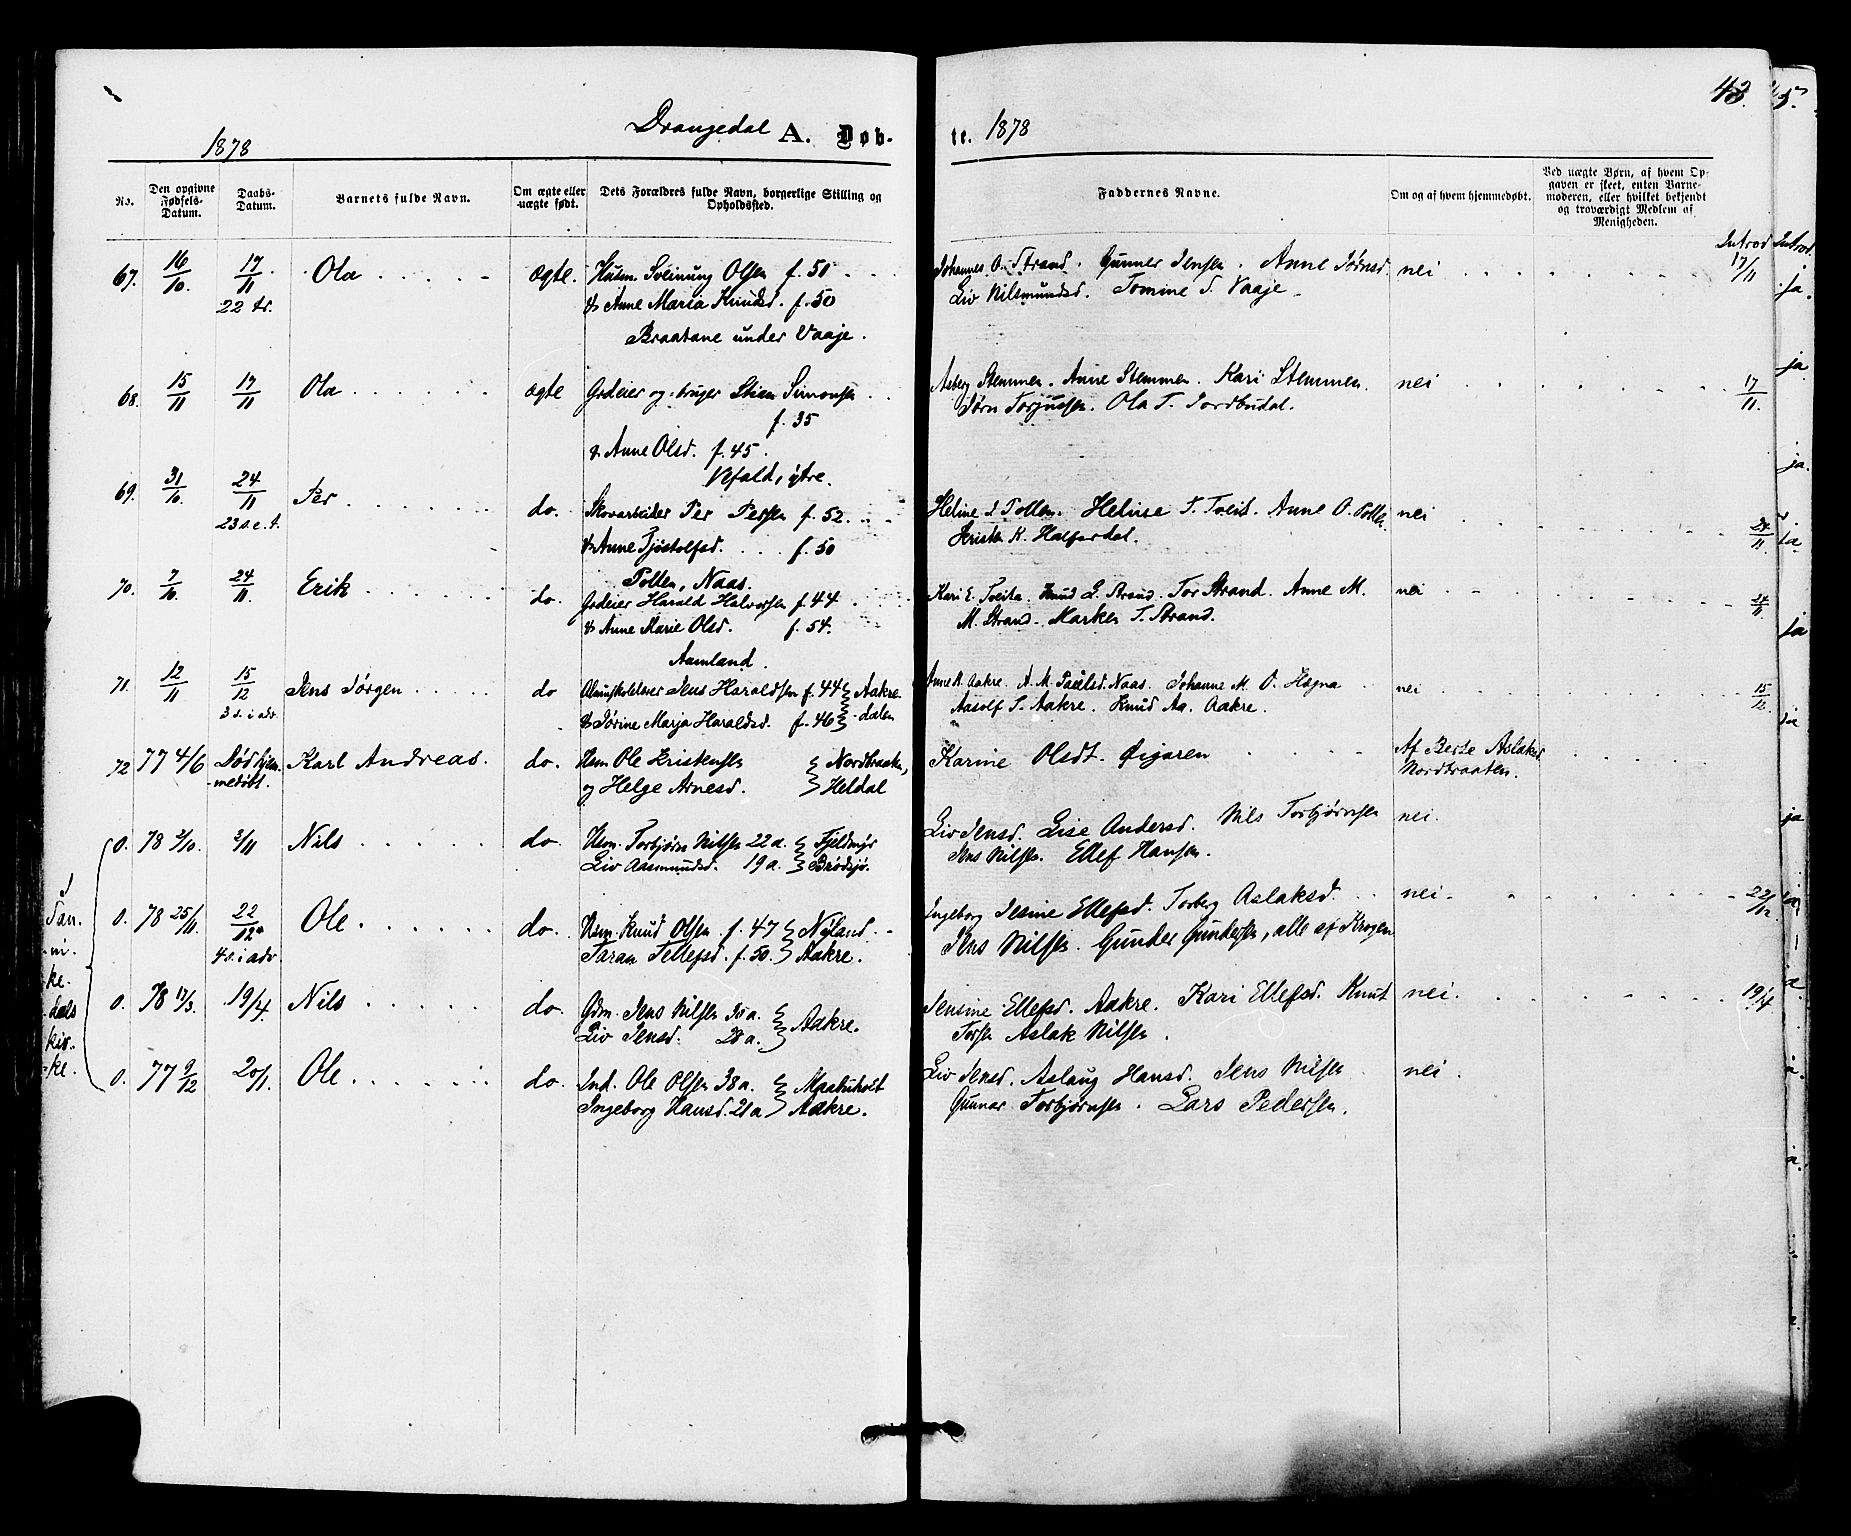 43.
Drangedal A. Døb-
te. 1878
1878
No.
Den opgivne Fødsels-Datum.
Daabs-Datum.
Barnets fulde Navn.
Om ægte eller uægte født.
Dets Forældres fulde Navn, borgerlige Stilling og Opholdssted.
Faddernes Navne.
Om og af hvem hjemmedøbt.
Ved uægte Børn, af hvem Opgaven er skeet, enten Barnemoderen, eller hvilket bekjendt og troværdigt Medlem af Menigheden.
Introd
67. 16/10. 17/11 22 tr. Ola ægte. Husm. Sveinung Olsen f. 50
& Anne Maria Knudsd. f. 50
Braatane under Vaaje.
Johannes O. Strand. Gunner Jensen. Anne Jørnsd. nei 17/11
Liv Nilsmundsd. Tomine T. Vaaje
68. 15/11 17/11 Ola ægte Grdeier og bruger Stian Simonsen
f. 35
& Anne Olsd. f. 45.
Vefald, ytre.
Asberg Stemmen. Anne Stemmen. Kari Stemmen. nei 17/11.
Jørn Torjussen. Ola T. Jordbudal.
69. 31/10. 24/11 23 s.e.t. Per do. Skovarbeider Per Persen f. 52.
& Anne Tjøstolfsd. f. 50
Polten, Naas.
Heline Polten. Helvise T. Tveit. Anne O. Polten nei 24/11
K. Halferdal.
70. 7/10. 24/11. Erik do. Grdeier Harald Halvorsen f. 44
& Anne Marie Olsd. f. 54.
Aamland.
Kari E. Tveita. Knud G. Strand. Tor Strand. Anne M. nei 24/11
M. Strand. Marken T. Strand.
71. 12/11 15/12 3 s. i adv. Jens Jørgen do Jens Haraldsen f. 44 Aakre-
& Jørine Marja Haraldsd. f. 46 dalen
Anne K. Aakre. A. M. Naas. Johanne M. O. Hegna nei 15/12.
Aasolf S. Aakre. Knud Aa. Aakre.
72 77 4/6 Død hjem-medøbt. Karl Andreas. do. Hsm Ole Kristensen Nordbraaten,
og Helge Arnesd. Heldal
Karine Olsdt. Øigaren Af Berte Aslaksd.
Nordbraaten.
I San-ni-ke-dals kir-ke.
0. 78 2/10. 3/11 Nils do. Hsm. Torbjørn Nilsen 22 a. Fjeldmyr
Liv Aasmundsd. 19 a. Brødsjø.
Liv Jensd. Lise Andersd. Nils Torbjørnsen nei.
Jens Nilsen. Ellef Hansen.
0. 78 25/11. 22/12 4 s. i adv Ole. do. Hsm. Knud Olsen. f. 47 Nyland
Taran Tellefsd. f. 50. Aakre.
Ingeborg Jesine Ellefsd. Torberg Aslaksd. nei 22/12
Jens Nilsen. Gunder Gundersen, alle af Krogen
0. 78 17/3. 19/4. Nils do. Gdm. Jens Nilsen 30 a. Aakre.
Liv Jensd. 28 a.
Jensine Ellefsd. Aakre. Kari Ellefsd. Knut nei. 19/4
Torsen Aslak Nilsen.
0. 77 9/12 20/1. Ole do. Ind. Ole Olsen 38 a. Maabuholt
Ingeborg Hansd. 21 a Aakre.
Liv Jensd. Aslaug Hansd. Jens Nilsen nei.
Gunnar Torbjørnsen. Lars Pedersen.
5.
Introd.
ja.
ja
ja.
ja
ja
ja
ja